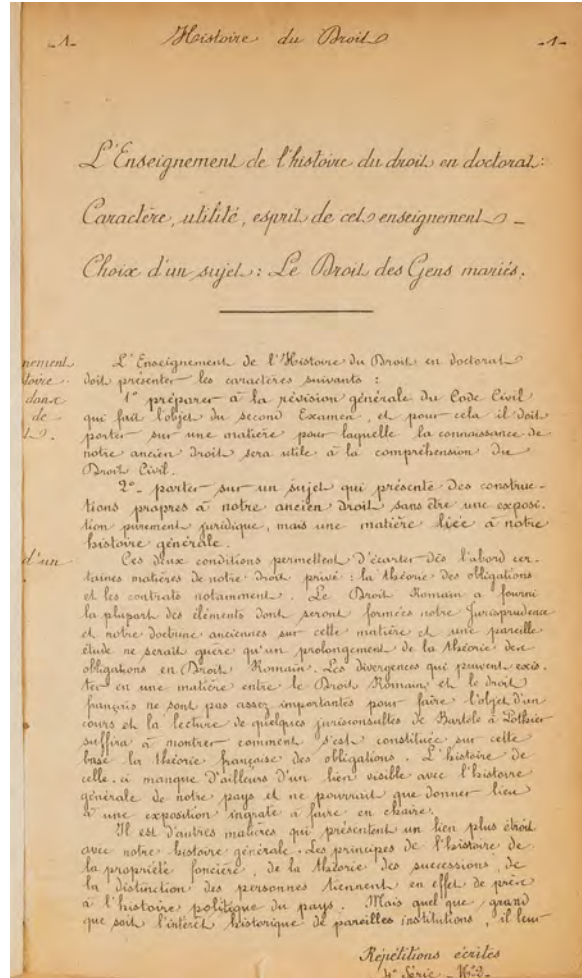 -1- Histoire du Droit -1-
L'Enseignement de l'histoire du droit en doctorat:
Caractère, utilité, esprit de cet enseignement -
Choix d'un sujet: Le Droit des Gens mariés.
nement
toire
dans
de
d'un
L'Enseignement de l'Histoire du Droit en doctorat
doit présenter les caractères suivants :
1° préparer à la révision générale du Code Civil
qui fait l'objet du second Examen, et pour cela il doit
porter sur une matière pour laquelle la connaissance de
notre ancien droit sera utile à la compréhension du
Droit Civil.
2°- porter sur un sujet qui présente des construc-
tions propres à notre ancien droit sans être une exposi-
tion purement juridique, mais une matière liée à notre
histoire générale.
Ces deux conditions permettent d'écarter dès l'abord cer-
taines matières de notre droit privé : la théorie des obligations
et les contrats notamment. Le Droit Romain a fourni
la plupart des éléments dont seront formées notre Jurisprudence
et notre doctrine anciennes sur cette matière et une pareille
étude ne serait guère qu'un prolongement de la théorie des
obligations en Droit Romain. Les divergences qui peuvent exis-
ter en une matière entre le Droit Romain et le droit
français ne sont pas assez importantes pour faire l'objet d'un
cours et la lecture de quelques jurisconsultes de Bartole à Pothier
suffira à montrer comment s'est constituée sur cette
base la théorie française des obligations. L'histoire de
celle-ci manque d'ailleurs d'un lien visible avec l'histoire
générale de notre pays et ne pourrait que donner lieu
à une exposition ingrate à faire en chaire.
Il est d'autres matières qui présentent un lien plus étroit
avec notre histoire générale. Les principes de l'histoire de
la propriété foncière, de la théorie des successions, de
la distinction des personnes tiennent en effet de près
à l'histoire politique du pays. Mais quel que grand
que soit l'intérêt historique de pareilles institutions, il leur
Répétitions écrites
4e Série - N°2-